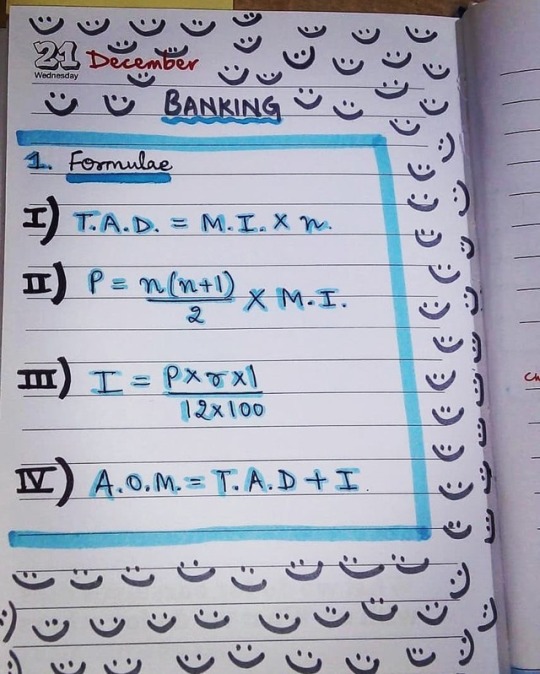 21 December
Wednesday
BANKING
1. Formulae
I) T.A.D. = M.I. X n.
II) P = n(n+1)/2 X M.I.
III) I = Pxrx1/12x100
IV) A.O.M. = T.A.D + I.